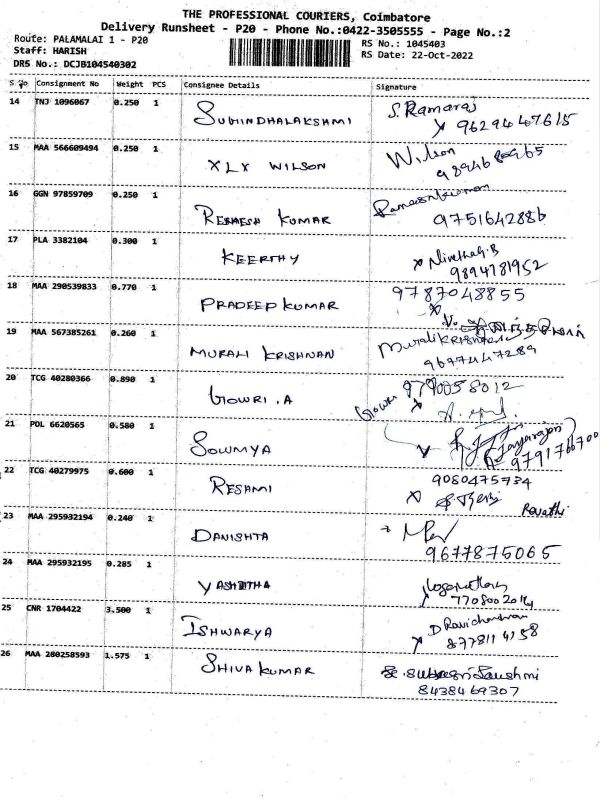 THE PROFESSIONAL COURIERS, Coimbatore
Delivery Runsheet - P20 - Phone No.:0422-3505555 - Page No.:2
Route: PALAMALAI 1 - P20
RS No.: 1045403
Staff: HARISH
RS Date: 22-Oct-2022
DRS No.: DCJB104540302
S No Consignment No Weight PCS Consignee Details Signature
14 TNJ 1096067 0.250 1 SUBHINDHALAKSHMI S. Ramaraj
9629447615
15 MAA 566609494 0.250 1 XLX WILSON Wilson
16 GGN 97859709 0.250 1 KUMAR
9751642886
17 PLA 3382104 0.300 1 KEERTHY
9894781952
18 MAA 290539833 0.770 1 PRADEEP KUMAR 9787048855
19 MAA 567385261 0.260 1 MURALI KRISHNAN
9697447289
20 TCG 40280366 0.890 1 GOWRI .A 9790058012
Gowri
21 POL 6620565 0.580 1 SOWMYA Jayarajan
22 TCG 40279975 0.600 1 RESHMI 9080475734
Revathi
23 MAA 295932194 0.240 1 DANISHTA
9677875065
24 MAA 295932195 0.285 1
25 CNR 1704422 3.500 1 ISHWARYA D Ravichandran
26 MAA 280258593 1.575 1 SHIVA KUMAR
8438469307